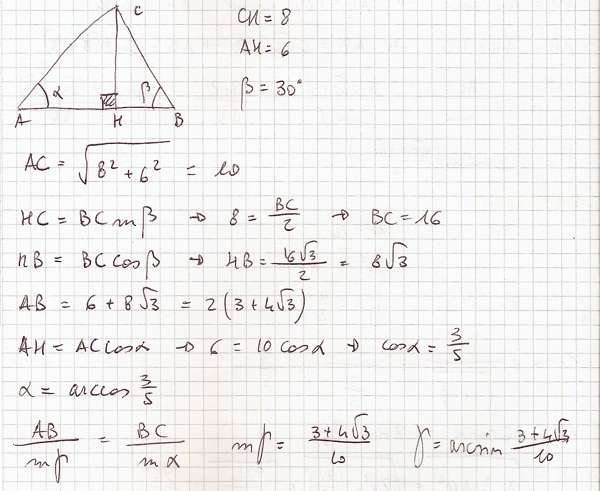 C
α
β
A H B
CH = 8
AH = 6
β = 30°
AC = √(8² + 6²) = 10
HC = BC sin β → 8 = BC/2 → BC = 16
HB = BC cos β → HB = 16√3/2 = 8√3
AB = 6 + 8√3 = 2(3 + 4√3)
AH = AC cos α → 6 = 10 cos α → cos α = 3/5
α = arccos 3/5
AB/sin γ = BC/sin α sin γ = (3 + 4√3)/10 γ = arcsin (3 + 4√3)/10